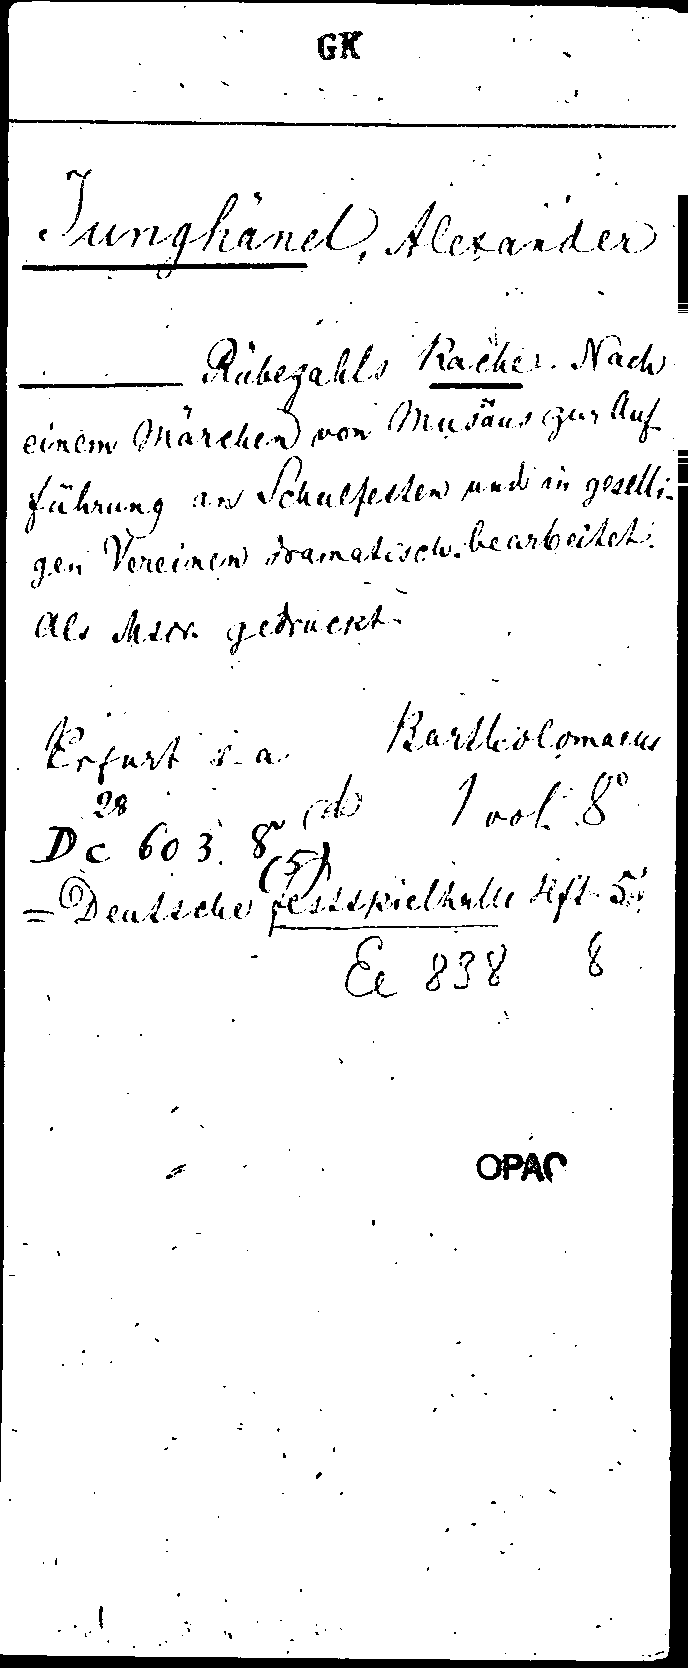 GK
Junghänel, Alexander
Rübezahls Rache. Nach
einem Märchen von Musäus zur Auf-
führung an Schulfesten und in geselli-
gen Vereinen dramatisch bearbeitet.
Als Mscr. gedruckt.
Erfurt s. a. Bartholomaeus
28
Dc 603. 8° 1 vol. 8°
(5)
= Deutsche Festspielhalle Hft. 5.
Ee 838 8
OPAC